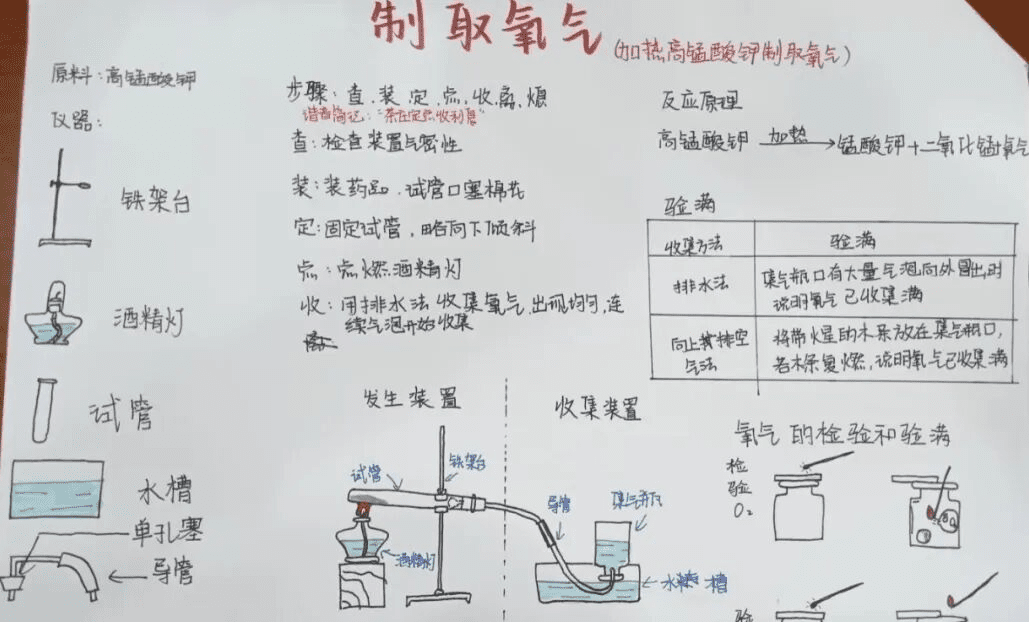 制取氧气(加热高锰酸钾制取氧气)
原料:高锰酸钾
仪器:
铁架台
酒精灯
试管
水槽
单孔塞
导管
步骤:查.装.定.点.收.离.熄
谐音简记:"茶庄定点收利息"
查:检查装置气密性
装:装药品.试管口塞棉花
定:固定试管,略向下倾斜
点:点燃酒精灯
收:用排水法收集氧气.出现均匀,连
续气泡开始收集
反应原理
高锰酸钾 加热 锰酸钾+二氧化锰+氧气
验满
收集方法 验满
排水法 集气瓶口有大量气泡向外冒出,时
说明氧气已收集满
向上排空
气法 将带火星的木条放在集气瓶口,
若木条复燃,说明氧气已收集满
发生装置
收集装置
试管
铁架台
酒精灯
导管
集气瓶
水槽
氧气的检验和验满
检
验
O₂
验